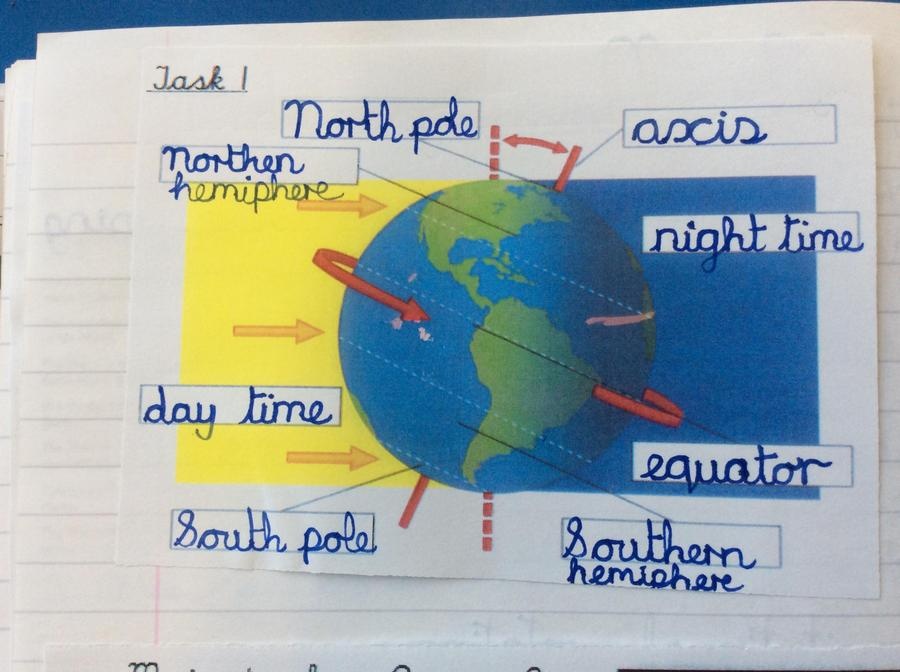 Task 1
North pole
axis
northen
hemiphere
night time
day time
equator
South pole
Southern
hemiphere